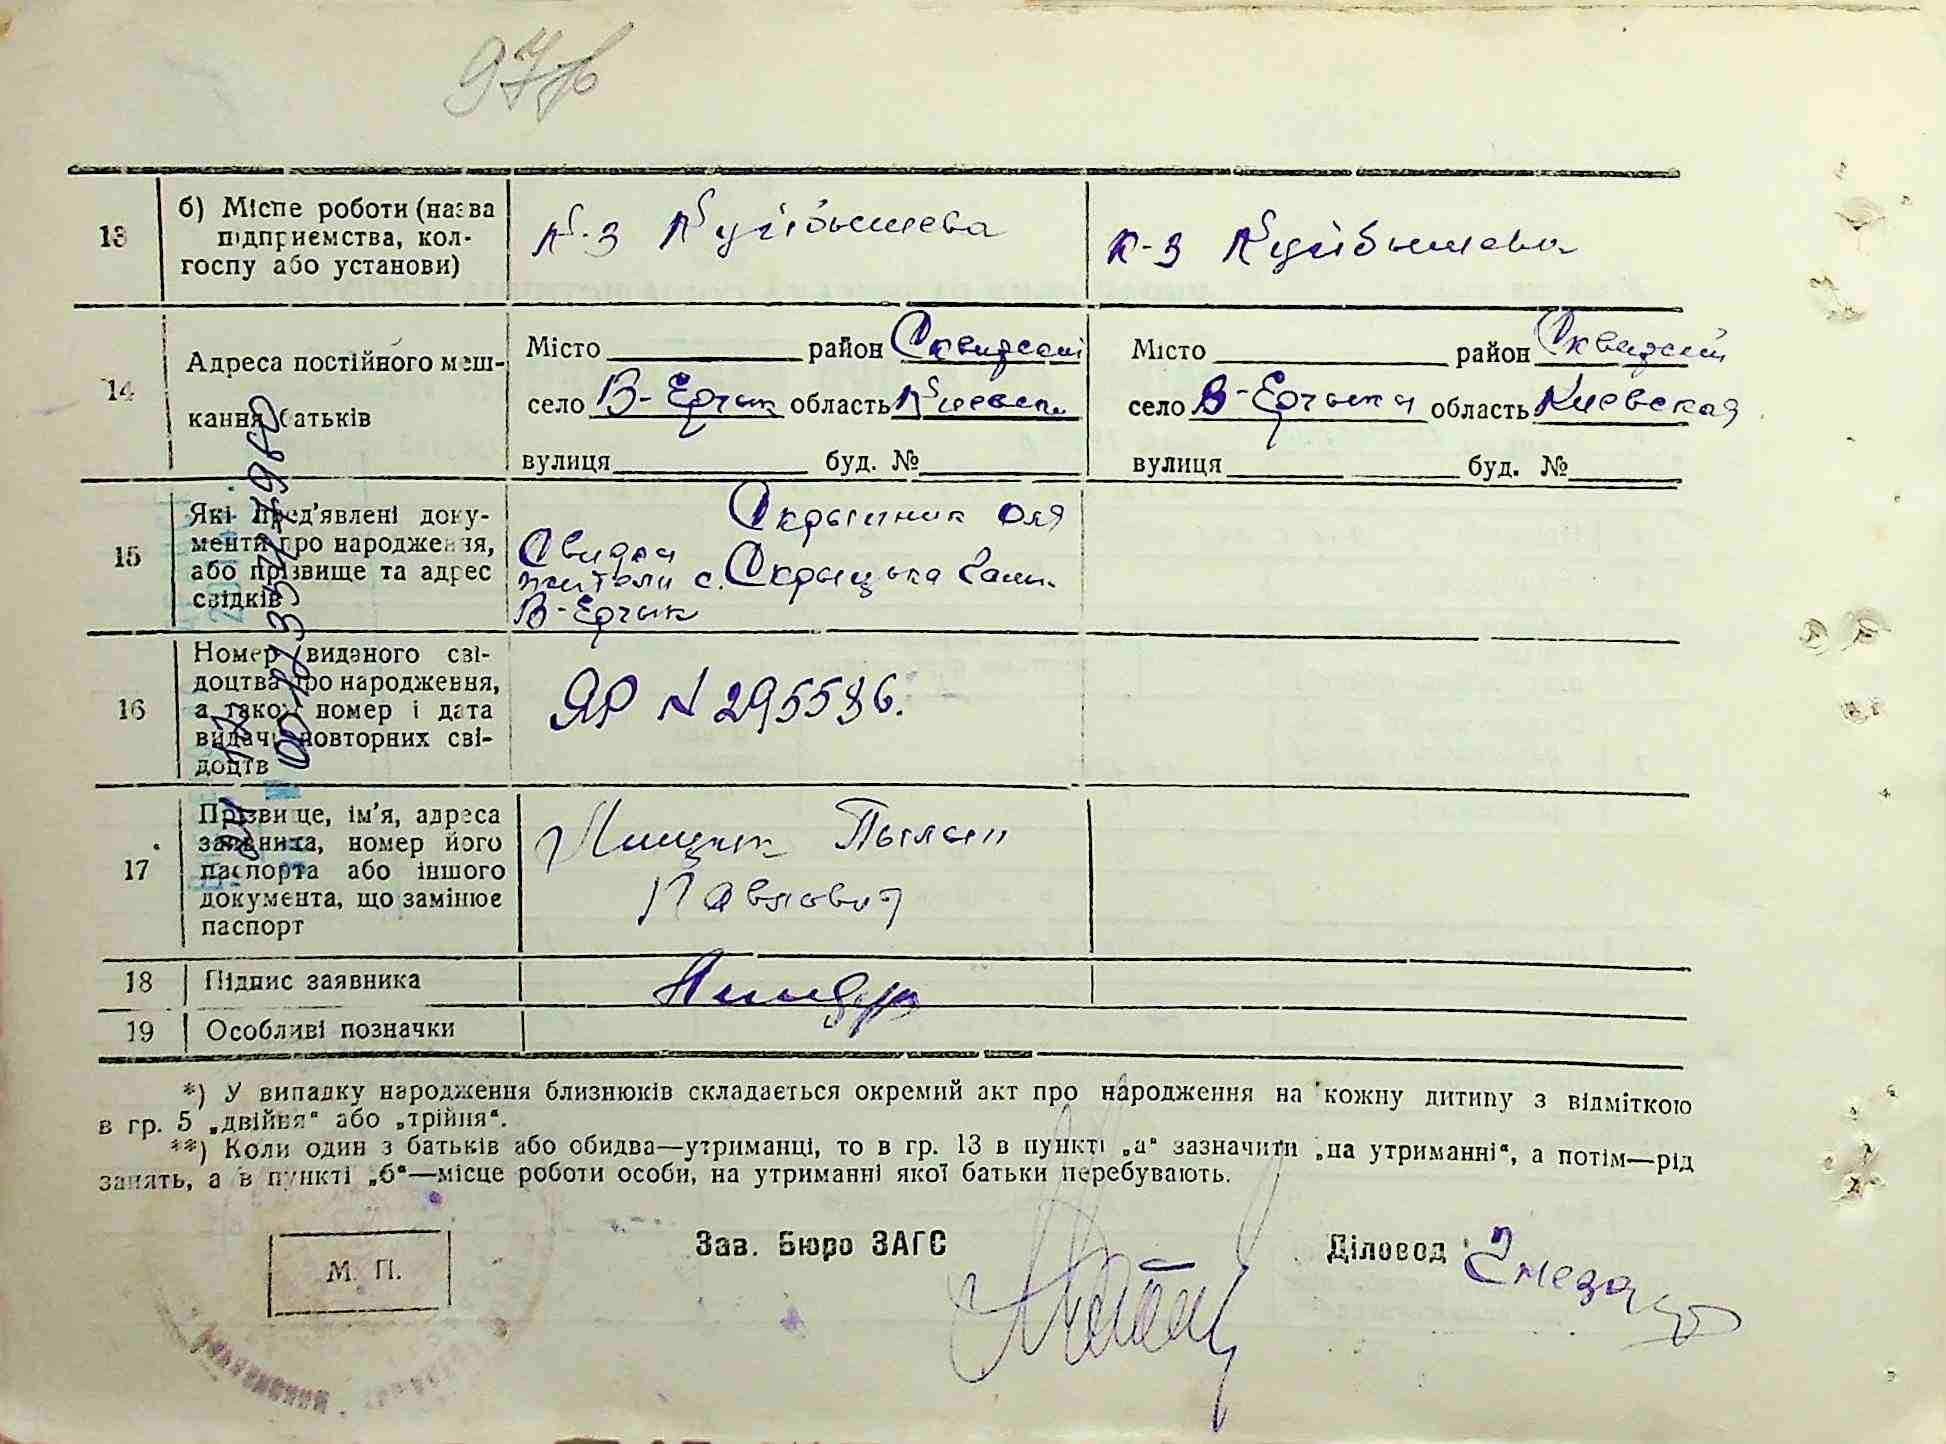 97
13
б) Місце роботи (назва
підприємства, кол-
госпу або установи)
к-з Куйбышева
к-з Куйбышева
14
Адреса постійного меш-
кання батьків
Місто район Сквирский
село В-Ерчик область Киевск.
вулиця буд. №
Місто район Сквирский
село В-Ерчики область Киевская
вулиця буд. №
15
Які пред'явлені доку-
менти про народження,
або прізвище та адрес
свідків
Оля
Свидки
жители с.
В-Ерчик
16
Номер виданого сві-
доцтва про народження,
а також номер і дата
видачі повторних сві-
доцтв
ЯР N 295536.
17
Прізвище, ім'я, адреса
заявника, номер його
паспорта або іншого
документа, що замінює
паспорт
Павлович
18
Підпис заявника
19
Особливі позначки
*) У випадку народження близнюків складається окремий акт про народження на кожну дитину з відміткою
в гр. 5 „двійня“ або „трійня“.
**) Коли один з батьків або обидва—утриманці, то в гр. 13 в пункті „а“ зазначити „на утриманні“, а потім—рід
занять, а в пункті „б“—місце роботи особи, на утриманні якої батьки перебувають.
М. П.
Зав. Бюро ЗАГС
Діловод